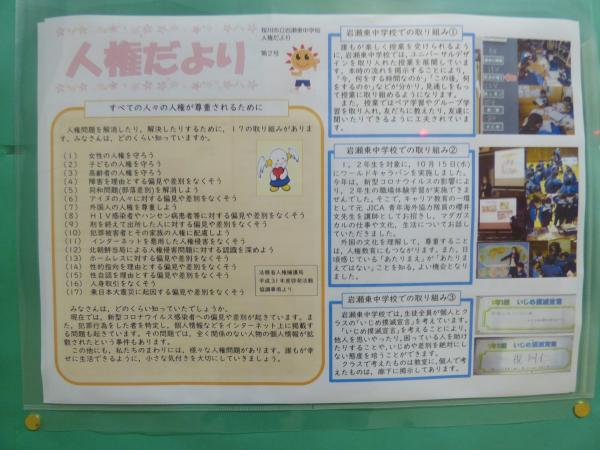 人権だより
桜川市立岩瀬東中学校
人権だより
第2号
すべての人々の人権が尊重されるために
人権問題を解消したり、解決したりするために、17の取り組みがありま
す。みなさんは、どのくらい知っていますか。
(1) 女性の人権を守ろう
(2) 子どもの人権を守ろう
(3) 高齢者の人権を守ろう
(4) 障害を理由とする偏見や差別をなくそう
(5) 同和問題(部落差別)を解消しよう
(6) アイヌの人々に対する偏見や差別をなくそう
(7) 外国人の人権を尊重しよう
(8) HIV感染者やハンセン病患者等に対する偏見や差別をなくそう
(9) 刑を終えて出所した人に対する偏見や差別をなくそう
(10) 犯罪被害者とその家族の人権に配慮しよう
(11) インターネットを悪用した人権侵害をなくそう
(12) 北朝鮮当局による人権侵害問題に対する認識を深めよう
(13) ホームレスに対する偏見や差別をなくそう
(14) 性的指向を理由とする偏見や差別をなくそう
(15) 性自認を理由とする偏見や差別をなくそう
(16) 人身取引をなくそう
(17) 東日本大震災に起因する偏見や差別をなくそう
法務省人権擁護局
平成31年度啓発活動
強調事項より
みなさんは、どのくらい知っていたでしょうか。
現在では、新型コロナウイルス感染者への偏見や差別が起きています。ま
た、犯罪行為をした者を特定し、個人情報などをインターネット上に掲載す
る問題も起きています。その問題では、全く関係のない人物の個人情報が拡
散されたという事件もあります。
この他にも、私たちのまわりには、様々な人権問題があります。誰もが幸
せに生活できるように、小さな気付きを大切にしていきましょう。
岩瀬東中学校での取り組み①
誰もが楽しく授業を受けられるよう
に、岩瀬東中学校では、ユニバーサルデザ
インを取り入れた授業を展開しています。
本時の流れを掲示することにより、
「今、何をする時間なのか」「この後、何
をするのか」などが分かり、見通しをもっ
て授業に取り組めるようになります。
また、授業ではペア学習やグループ学
習を取り入れ、友だちに教えたり、友達に
聞いたりできるように工夫されていま
す。
岩瀬東中学校での取り組み②
1、2年生を対象に、10月15日(水)
にワールドキャラバンを実施しました。
今年は、新型コロナウイルスの影響によ
り、2年生の職場体験学習が実施できま
せんでした。そこで、キャリア教育の一環
として元JICA青年海外協力隊員の櫻井
文先生を講師としてお招きし、マダガス
カルの仕事や文化、生活についてお話し
していただきました。
外国の文化を理解して、尊重すること
は、人権教育にもつながります。また、日
頃感じている「あたりまえ」が「あたりま
えではない」ことを知る、よい機会となり
ました。
岩瀬東中学校での取り組み③
岩瀬東中学校では、生徒全員が個人とク
ラスの「いじめ撲滅宣言」を考えています。
「いじめ撲滅宣言」を考えることにより、
他人を思いやったり、困っている人を助け
たりすることや、いじめや差別を絶対にし
ない態度を培うことができます。
クラスで考えたものは教室に、個人で考
えたものは、廊下に掲示してあります。
いじめ撲滅宣言
いじめ撲滅宣言